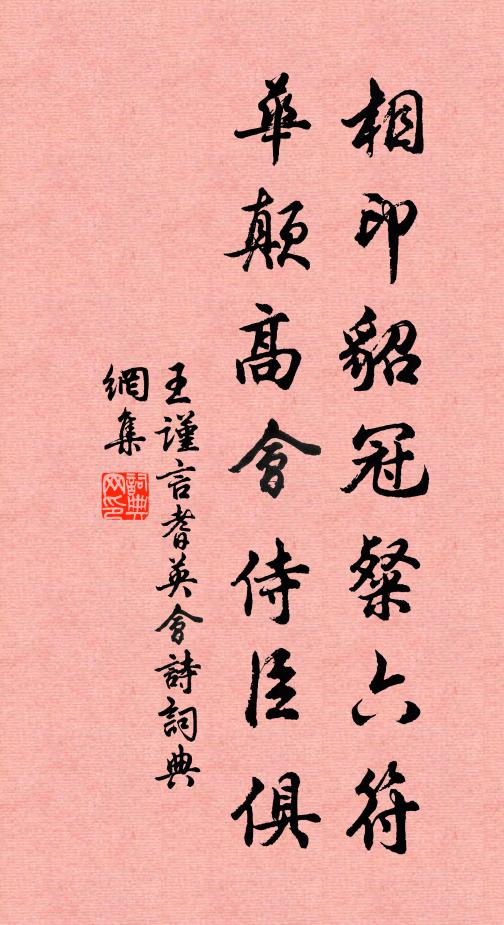 相印貂冠粲六符
華顛高會侍臣俱
王謹言耆英會詩詞典
網集
詞典
网印